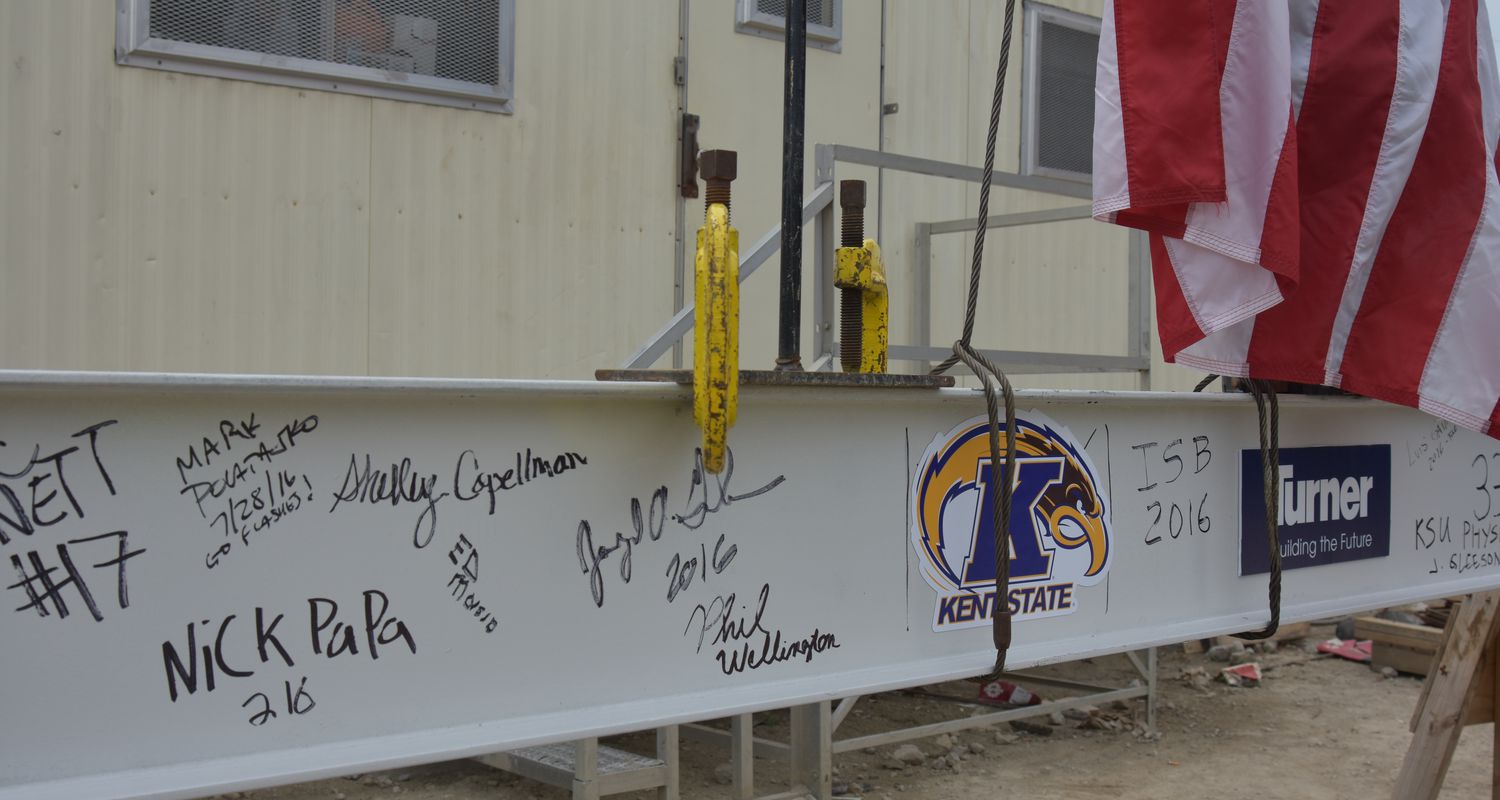 NETT
#17
MARK
POVATASKO
7/28/16
GO FLASHES!
Shelley Capellman
ED
NICK PAPA
216
2016
Phil
Wellington
K
KENT STATE
ISB
2016
Turner
Building the Future
KSU PHYS
J. GLEESON